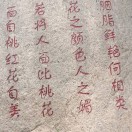 胭脂鲜艳何相类
花之颜色人之媚
若将人面比桃花
面自桃红花自美